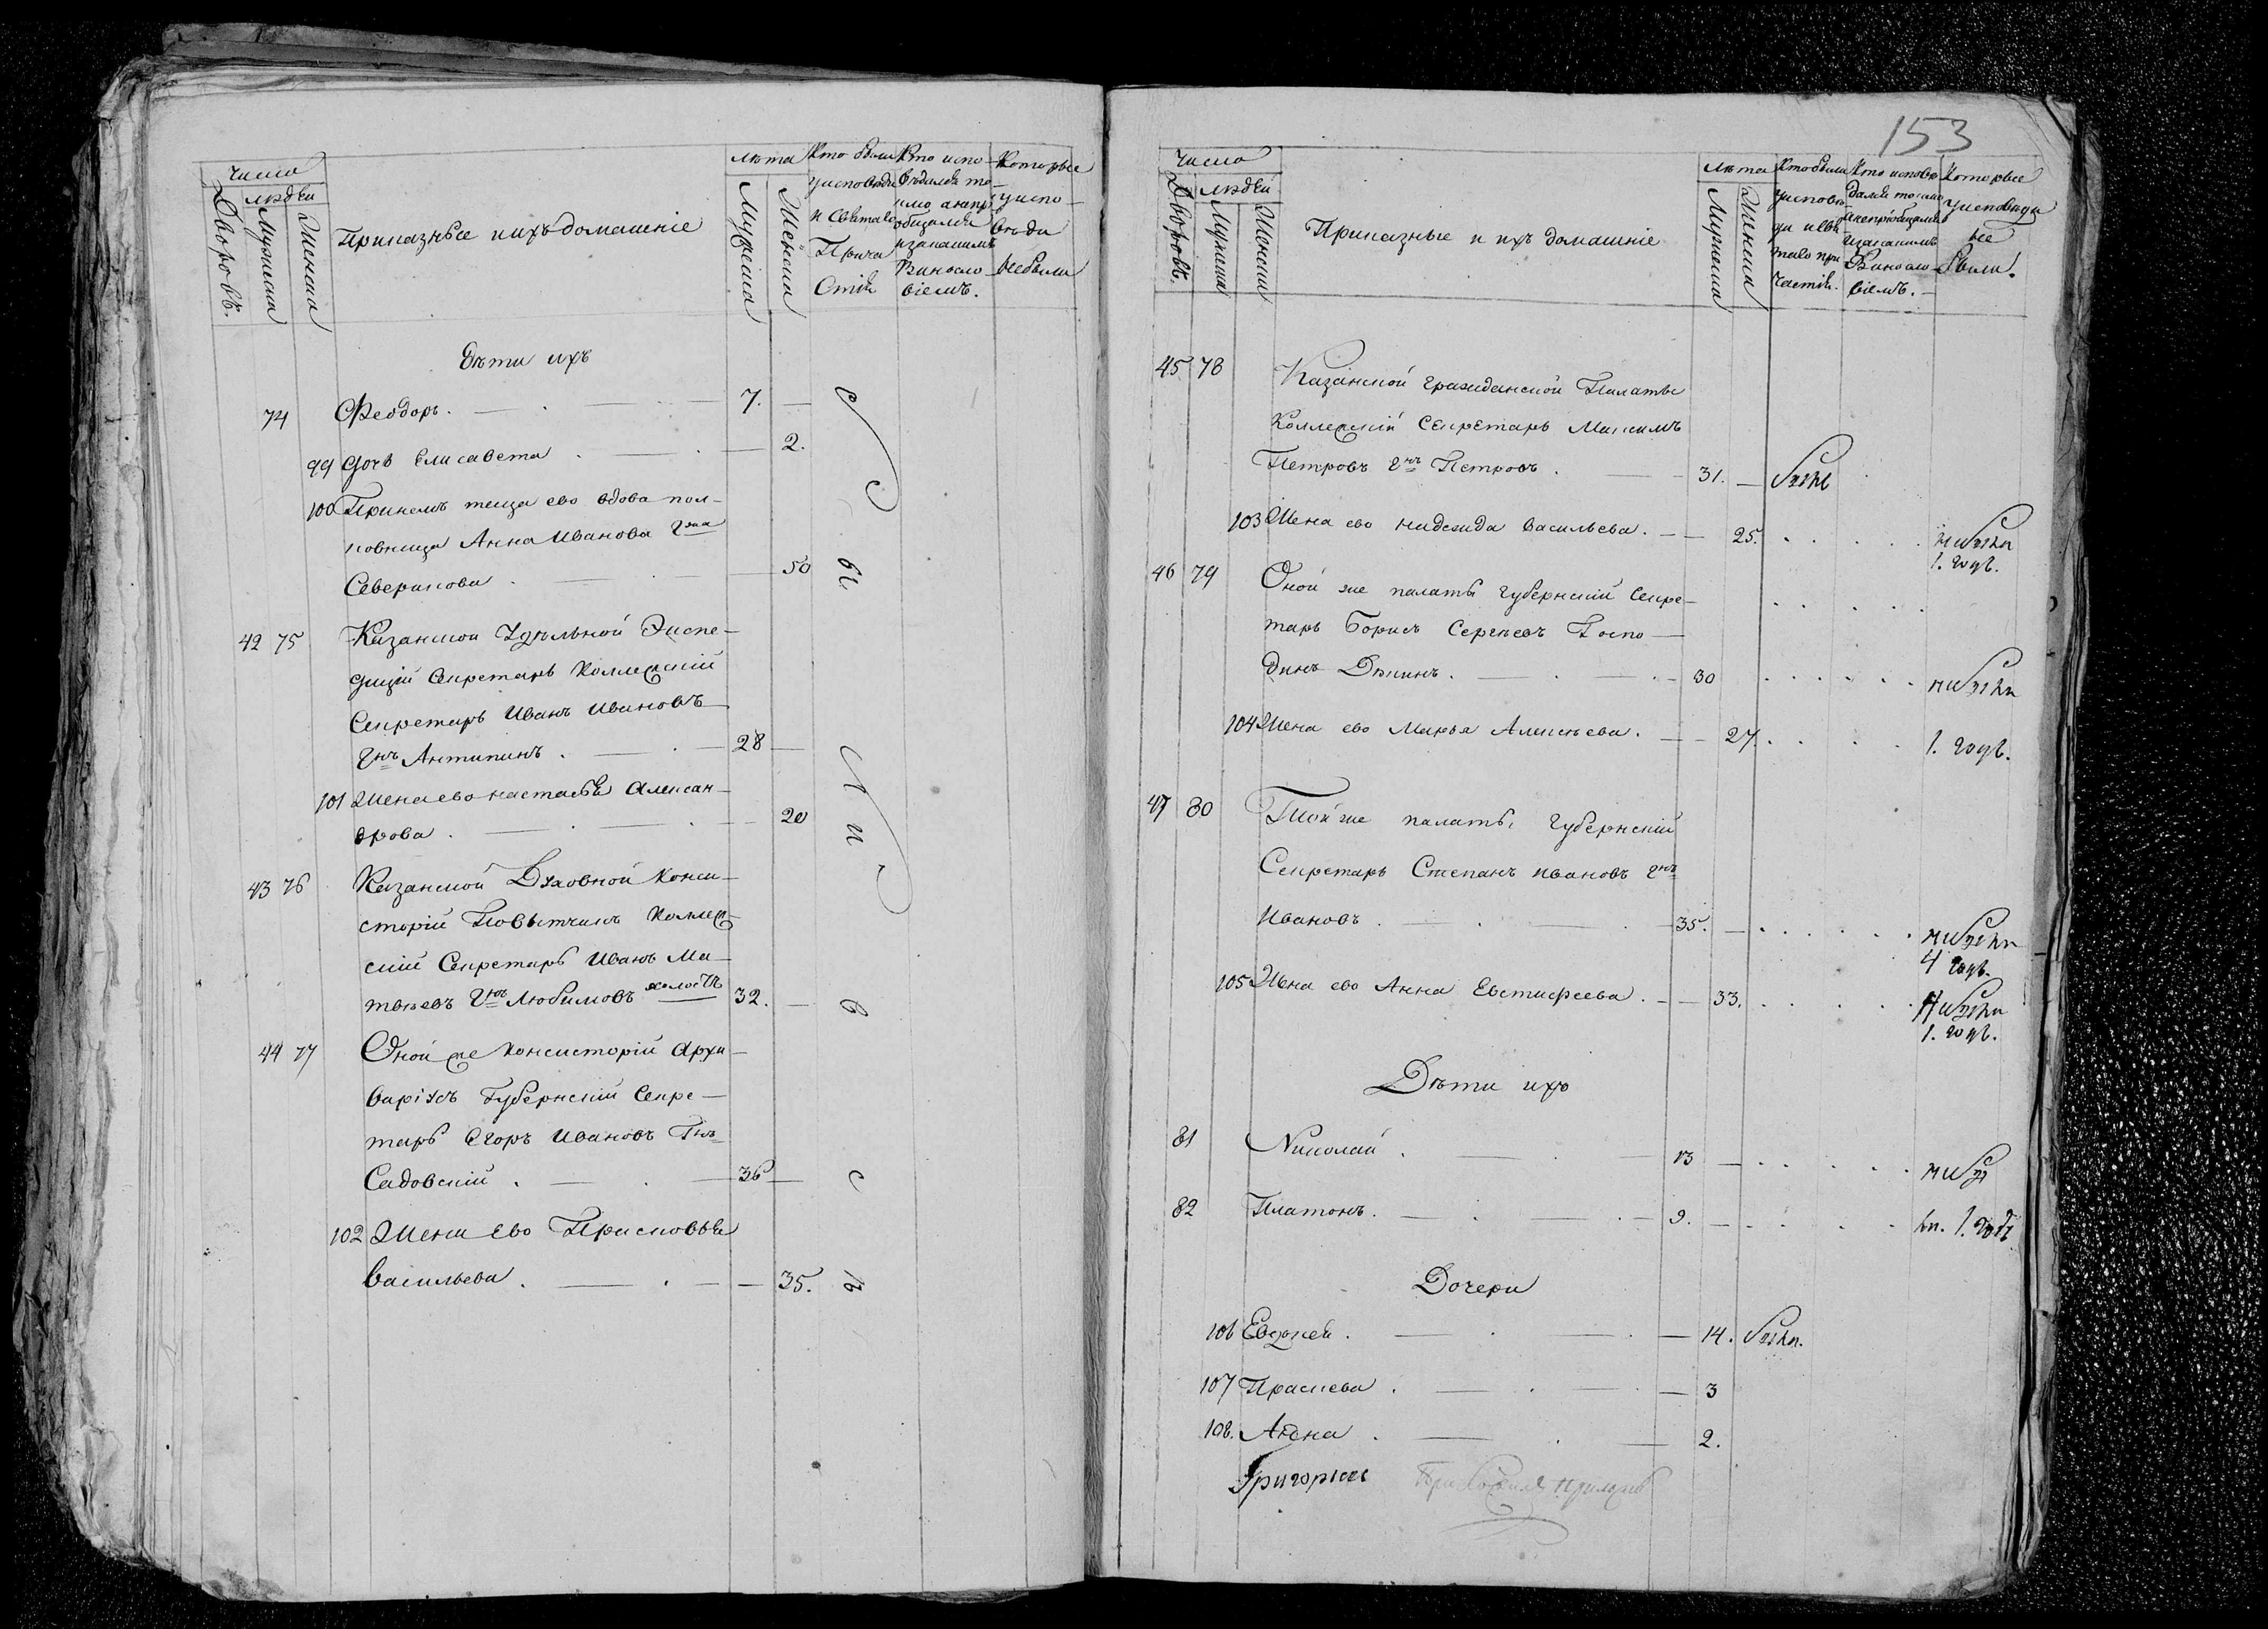 число
людей
Дворовъ.
Мужеска
Женска
Приказные и ихъ домашніе
лѣта
Мужеска
Женска
Кто были
у исповеди
и Святаго
Прича
стія
Кто испо
ведался то
и за какимъ
Виносло
віемъ.
Которые
у испо
веди
небыли
Дѣти ихъ
74 Феодоръ. 7.
99 Дочь Елисавета 2.
100 При немъ теща ево вдова пол-
ковница Анна Иванова Гжа
Северикова 50
42 75 Казанской Удѣльной Экспе-
диціи Секретарь Коллежскій
Секретарь Иванъ Ивановъ
Гнъ Антипинъ. 28
101 Жена ево Настасья Алексан-
дрова. 20
43 76 Казанской Духовной Конси-
сторіи Повытчикъ Коллеж-
скій Секретарь Иванъ Ма-
твѣевъ Гнъ Любимовъ холостъ 32.
44 77 Оной же Консисторіи Архи-
варіусъ Губернскій Секре-
тарь Егоръ Ивановъ Гнъ
Садовскій. 36
102 Жена Ево Прасковья
Васильева. 35.
153
Число
людей
Дворовъ.
Мужеска
Женска
Приказные и ихъ домашніе
лѣта
Мужеска
Женска
Кто были
у исповѣ
ди и Свя
таго при
частія.
Кто исповѣ
дался токмо
а непріобщался
и за какимъ
Виносло
віемъ.
Которые
у исповеди
не
были.
45 78 Казанской Гражданской Палаты
Коллежскій Секретарь Максимъ
Петровъ Гнъ Петровъ. 31.
103 Жена ево Надежда Васильева. 25.
1. годъ.
46 79 Оной же палаты Губернскій Секре-
тарь Борисъ Сергѣевъ Госпо-
динъ Дѣкинъ. 30
104 Жена ево Марья Алексѣева. 27. 1. годъ.
47 80 Той же палаты Губернскій
Секретарь Степанъ Ивановъ Гнъ
Ивановъ 35.
4 годъ.
105 Жена ево Анна Евстифеева. 33.
1. годъ.
Дѣти ихъ
81 Николай. 13
82 Платонъ. 9. 1. годъ
Дочери
106 Евдокея. 14.
107 Прасковья. 3
108. Анна. 2.